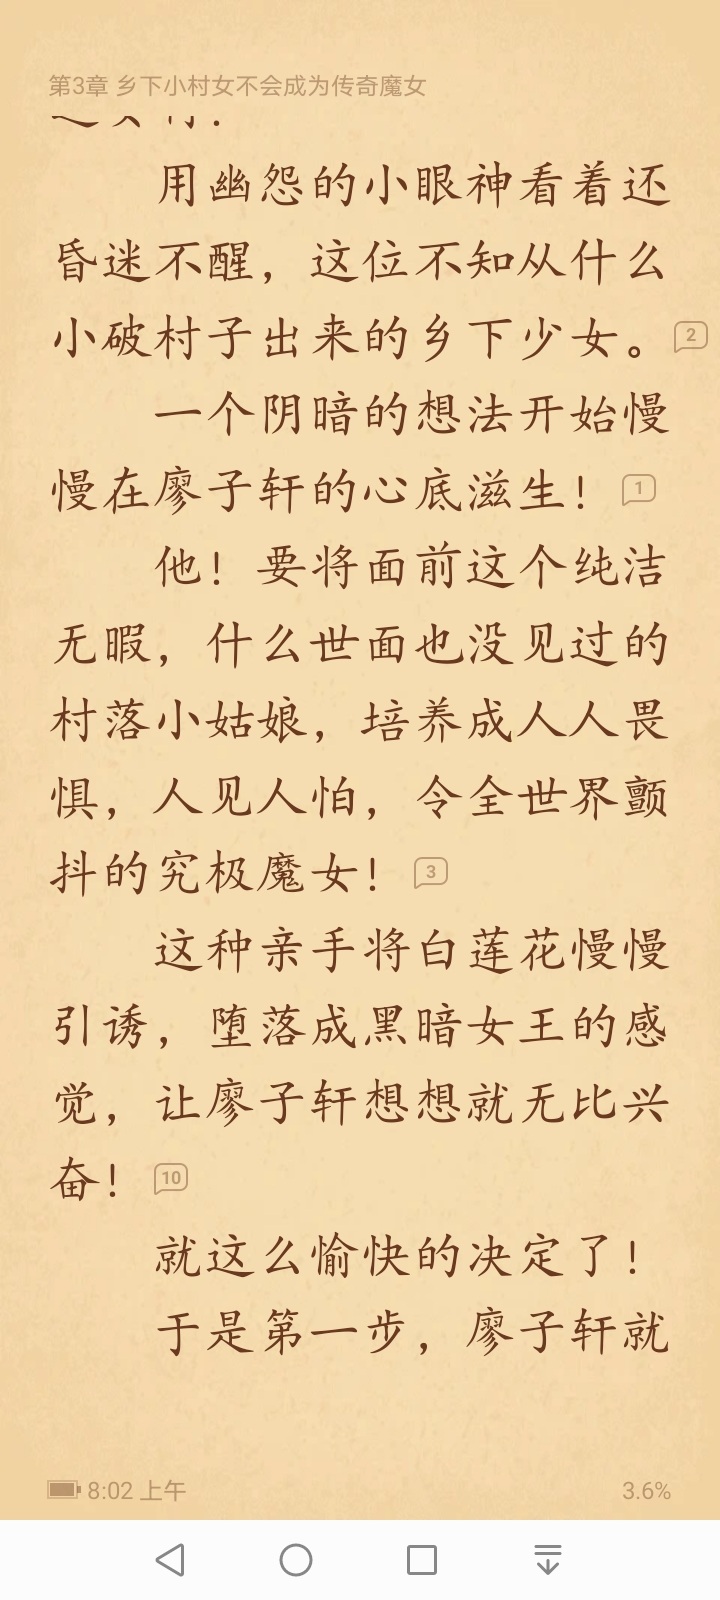 第3章 乡下小村女不会成为传奇魔女
用幽怨的小眼神看着还
昏迷不醒，这位不知从什么
小破村子出来的乡下少女。 2
一个阴暗的想法开始慢
慢在廖子轩的心底滋生！ 1
他！要将面前这个纯洁
无暇，什么世面也没见过的
村落小姑娘，培养成人人畏
惧，人见人怕，令全世界颤
抖的究极魔女！ 3
这种亲手将白莲花慢慢
引诱，堕落成黑暗女王的感
觉，让廖子轩想想就无比兴
奋！ 10
就这么愉快的决定了！
于是第一步，廖子轩就
8:02 上午 3.6%